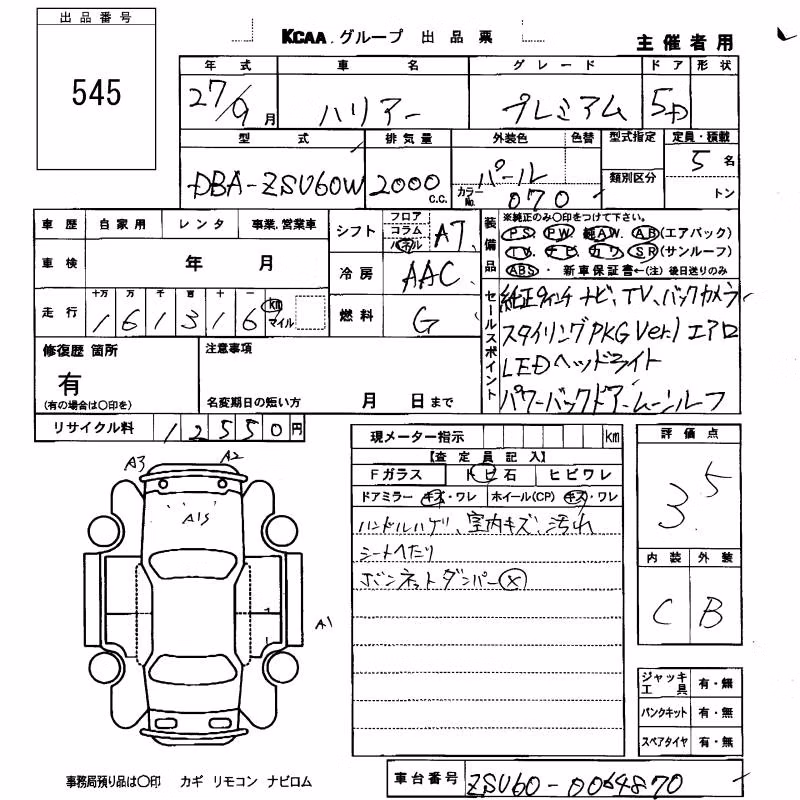 出品番号
545
KCAA グループ 出品票
主催者用
年式 車名 グレード ドア 形状
27/9月 ハリアー プレミアム 5D
型式 排気量 外装色 色替 型式指定 定員・積載
DBA-ZSU60W 2000c.c. パール カラーNo. 070 類別区分 5名 トン
車歴 自家用 レンタ 事業.営業車
シフト フロア コラム パネル AT
装備品 ※純正のみ〇印をつけて下さい。
PS. PW 純AW. AB(エアバック)
TV. ナビ. カワ SR(サンルーフ)
ABS・ 新車保証書←(注)後日送りのみ
車検 年 月
冷房 AAC
走行 十万 万 千 百 十 一 km マイル
161316
燃料 G
セールスポイント
純正9インチナビ、TV、バックカメラ
スタイリングPKG Ver.1 エアロ
LEDヘッドライト
パワーバックドア、ムーンルーフ
修復歴 箇所
有
(有の場合は〇印を)
注意事項
名変期日の短い方 月 日まで
リサイクル料 12550円
現メーター指示 km
【査定員記入】
Fガラス トビ石 ヒビワレ
ドアミラー キズ・ワレ ホイール(CP) キズ・ワレ
ハンドルハゲ、室内キズ、汚れ
シートへたり
ボンネットダンパー×
評価点
3.5
内装 外装
C B
A3 A2
A1S
A1
ジャッキ工具 有・無
パンクキット 有・無
スペアタイヤ 有・無
事務局預り品は〇印 カギ リモコン ナビロム
車台番号 ZSU60-0064870